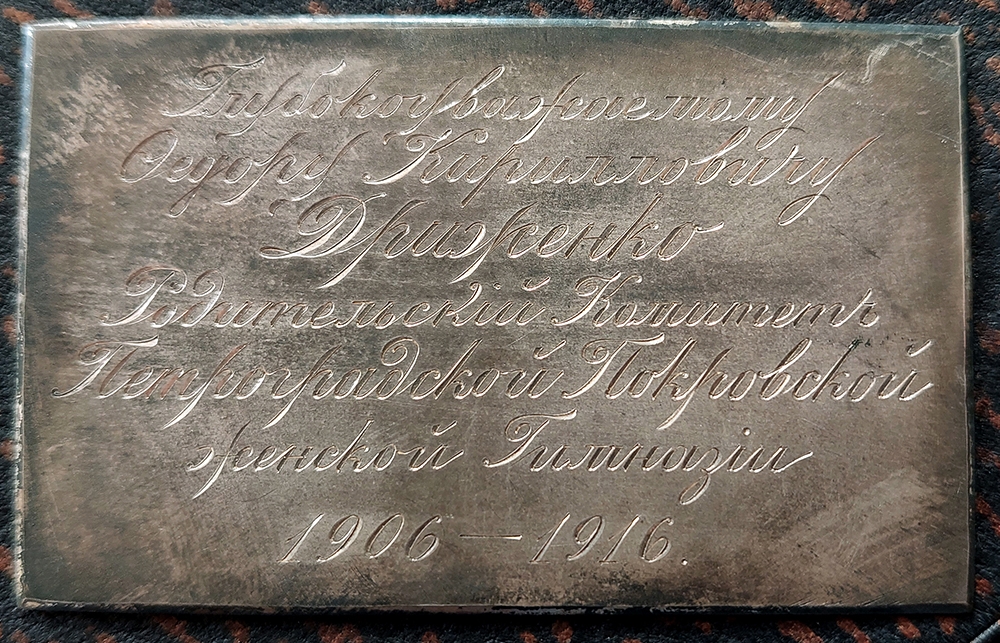 Глубокоуважаемому
Ѳедору Кирилловичу
Дриженко
Родительскій Комитетъ
Петроградской Покровской
женской Гимназіи
1906 — 1916.